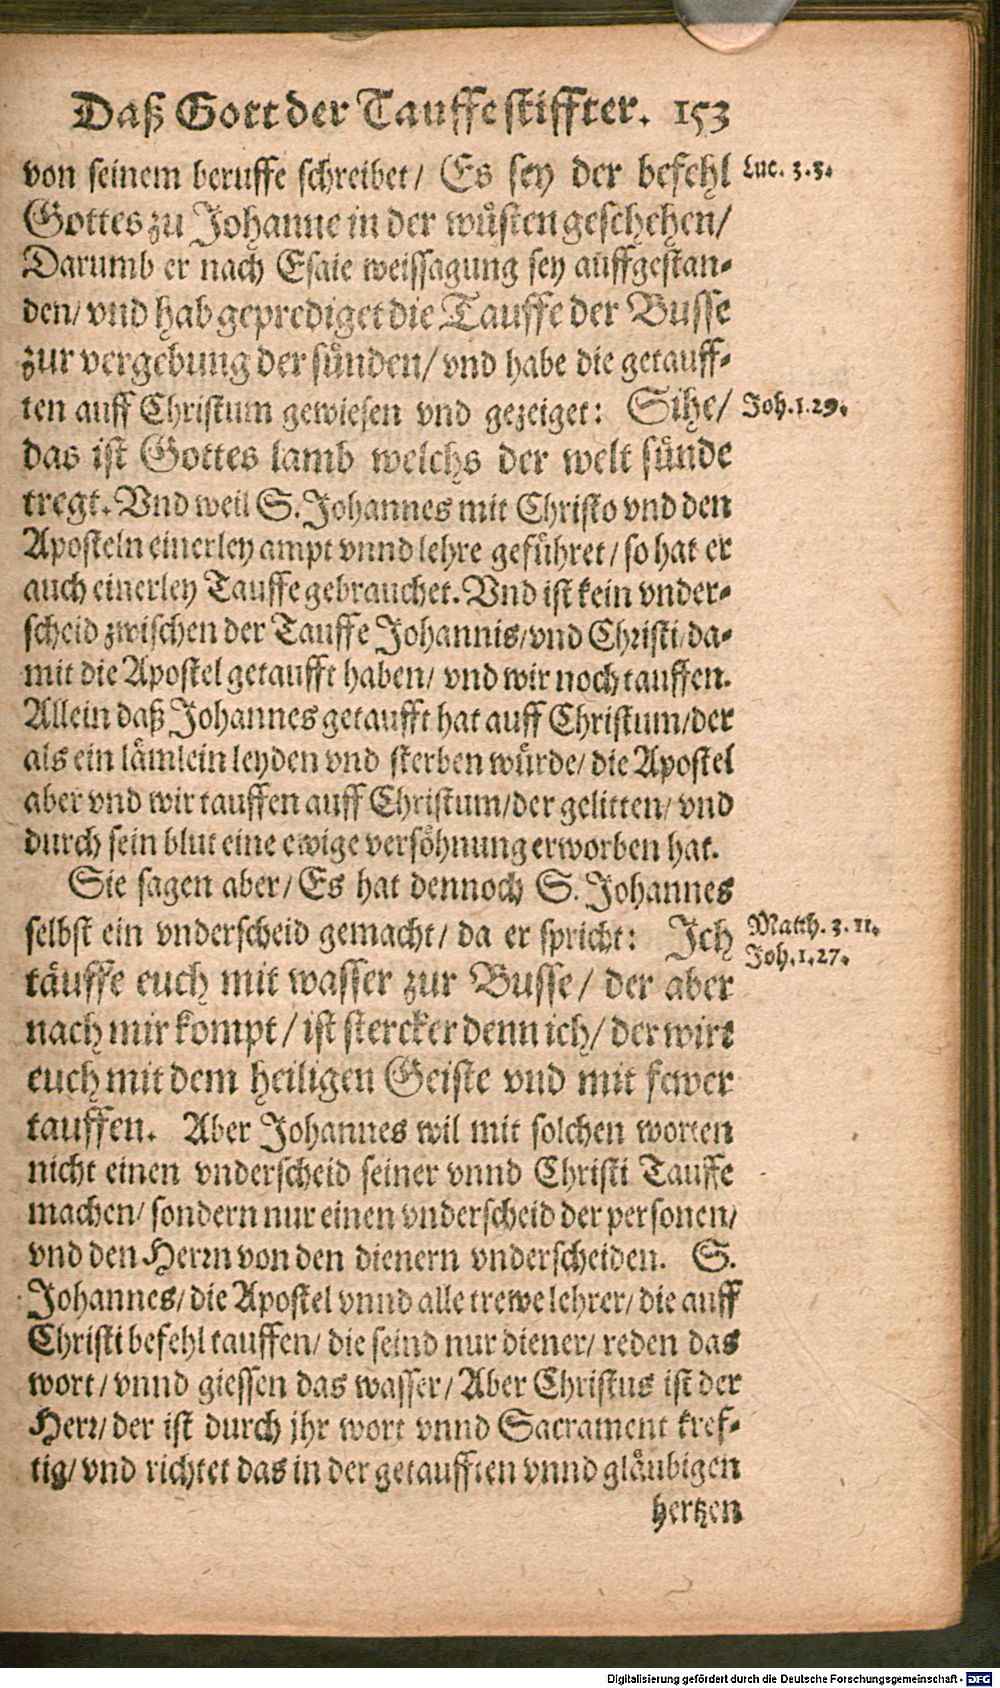 Daß Gott der Tauffe stiffter. 153
von seinem beruffe schreibet/ Es sey der befehl
Luc. 3.3.
Gottes zu Johanne in der wüsten geschehen/
Darumb er nach Esaie weissagung sey auffgestan-
den/ vnd hab geprediget die Tauffe der Busse
zur vergebung der sünden/ vnd habe die getauff-
ten auff Christum gewiesen vnd gezeiget: Sihe/
Joh.1.29.
das ist Gottes lamb welchs der welt sünde
tregt. Vnd weil S. Johannes mit Christo vnd den
Aposteln einerley ampt vnnd lehre geführet/ so hat er
auch einerley Tauffe gebrauchet. Vnd ist kein vnder-
scheid zwischen der Tauffe Johannis/ vnd Christi/ da-
mit die Apostel getaufft haben/ vnd wir noch tauffen.
Allein daß Johannes getaufft hat auff Christum/ der
als ein lämlein leyden vnd sterben würde/ die Apostel
aber vnd wir tauffen auff Christum/ der gelitten/ vnd
durch sein blut eine ewige versöhnung erworben hat.
Sie sagen aber/ Es hat dennoch S. Johannes
selbst ein vnderscheid gemacht/ da er spricht: Ich
Matth. 3.11.
Joh.1.27.
täuffe euch mit wasser zur Busse/ der aber
nach mir kompt/ ist stercker denn ich/ der wirt
euch mit dem heiligen Geiste vnd mit fewer
tauffen. Aber Johannes wil mit solchen worten
nicht einen vnderscheid seiner vnnd Christi Tauffe
machen/ sondern nur einen vnderscheid der personen/
vnd den Herrn von den dienern vnderscheiden. S.
Johannes/ die Apostel vnnd alle trewe lehrer/ die auff
Christi befehl tauffen/ die seind nur diener/ reden das
wort/ vnnd giessen das wasser/ Aber Christus ist der
Herr/ der ist durch jhr wort vnnd Sacrament kref-
tig/ vnd richtet das in der getaufften vnnd gläubigen
hertzen
Digitalisierung gefördert durch die Deutsche Forschungsgemeinschaft - DFG